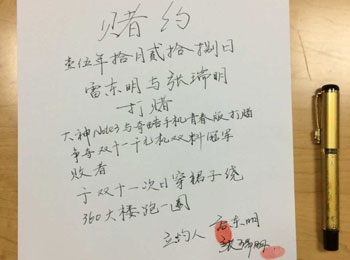 赌约
壹伍年拾月贰拾捌日
雷东明与张瑞明
打赌
大神Note3与奇酷手机青春版打赌
争夺双十一千元机双料冠军
败者
于双十一次日穿裙子绕
360大楼跑一圈
立约人 雷东明